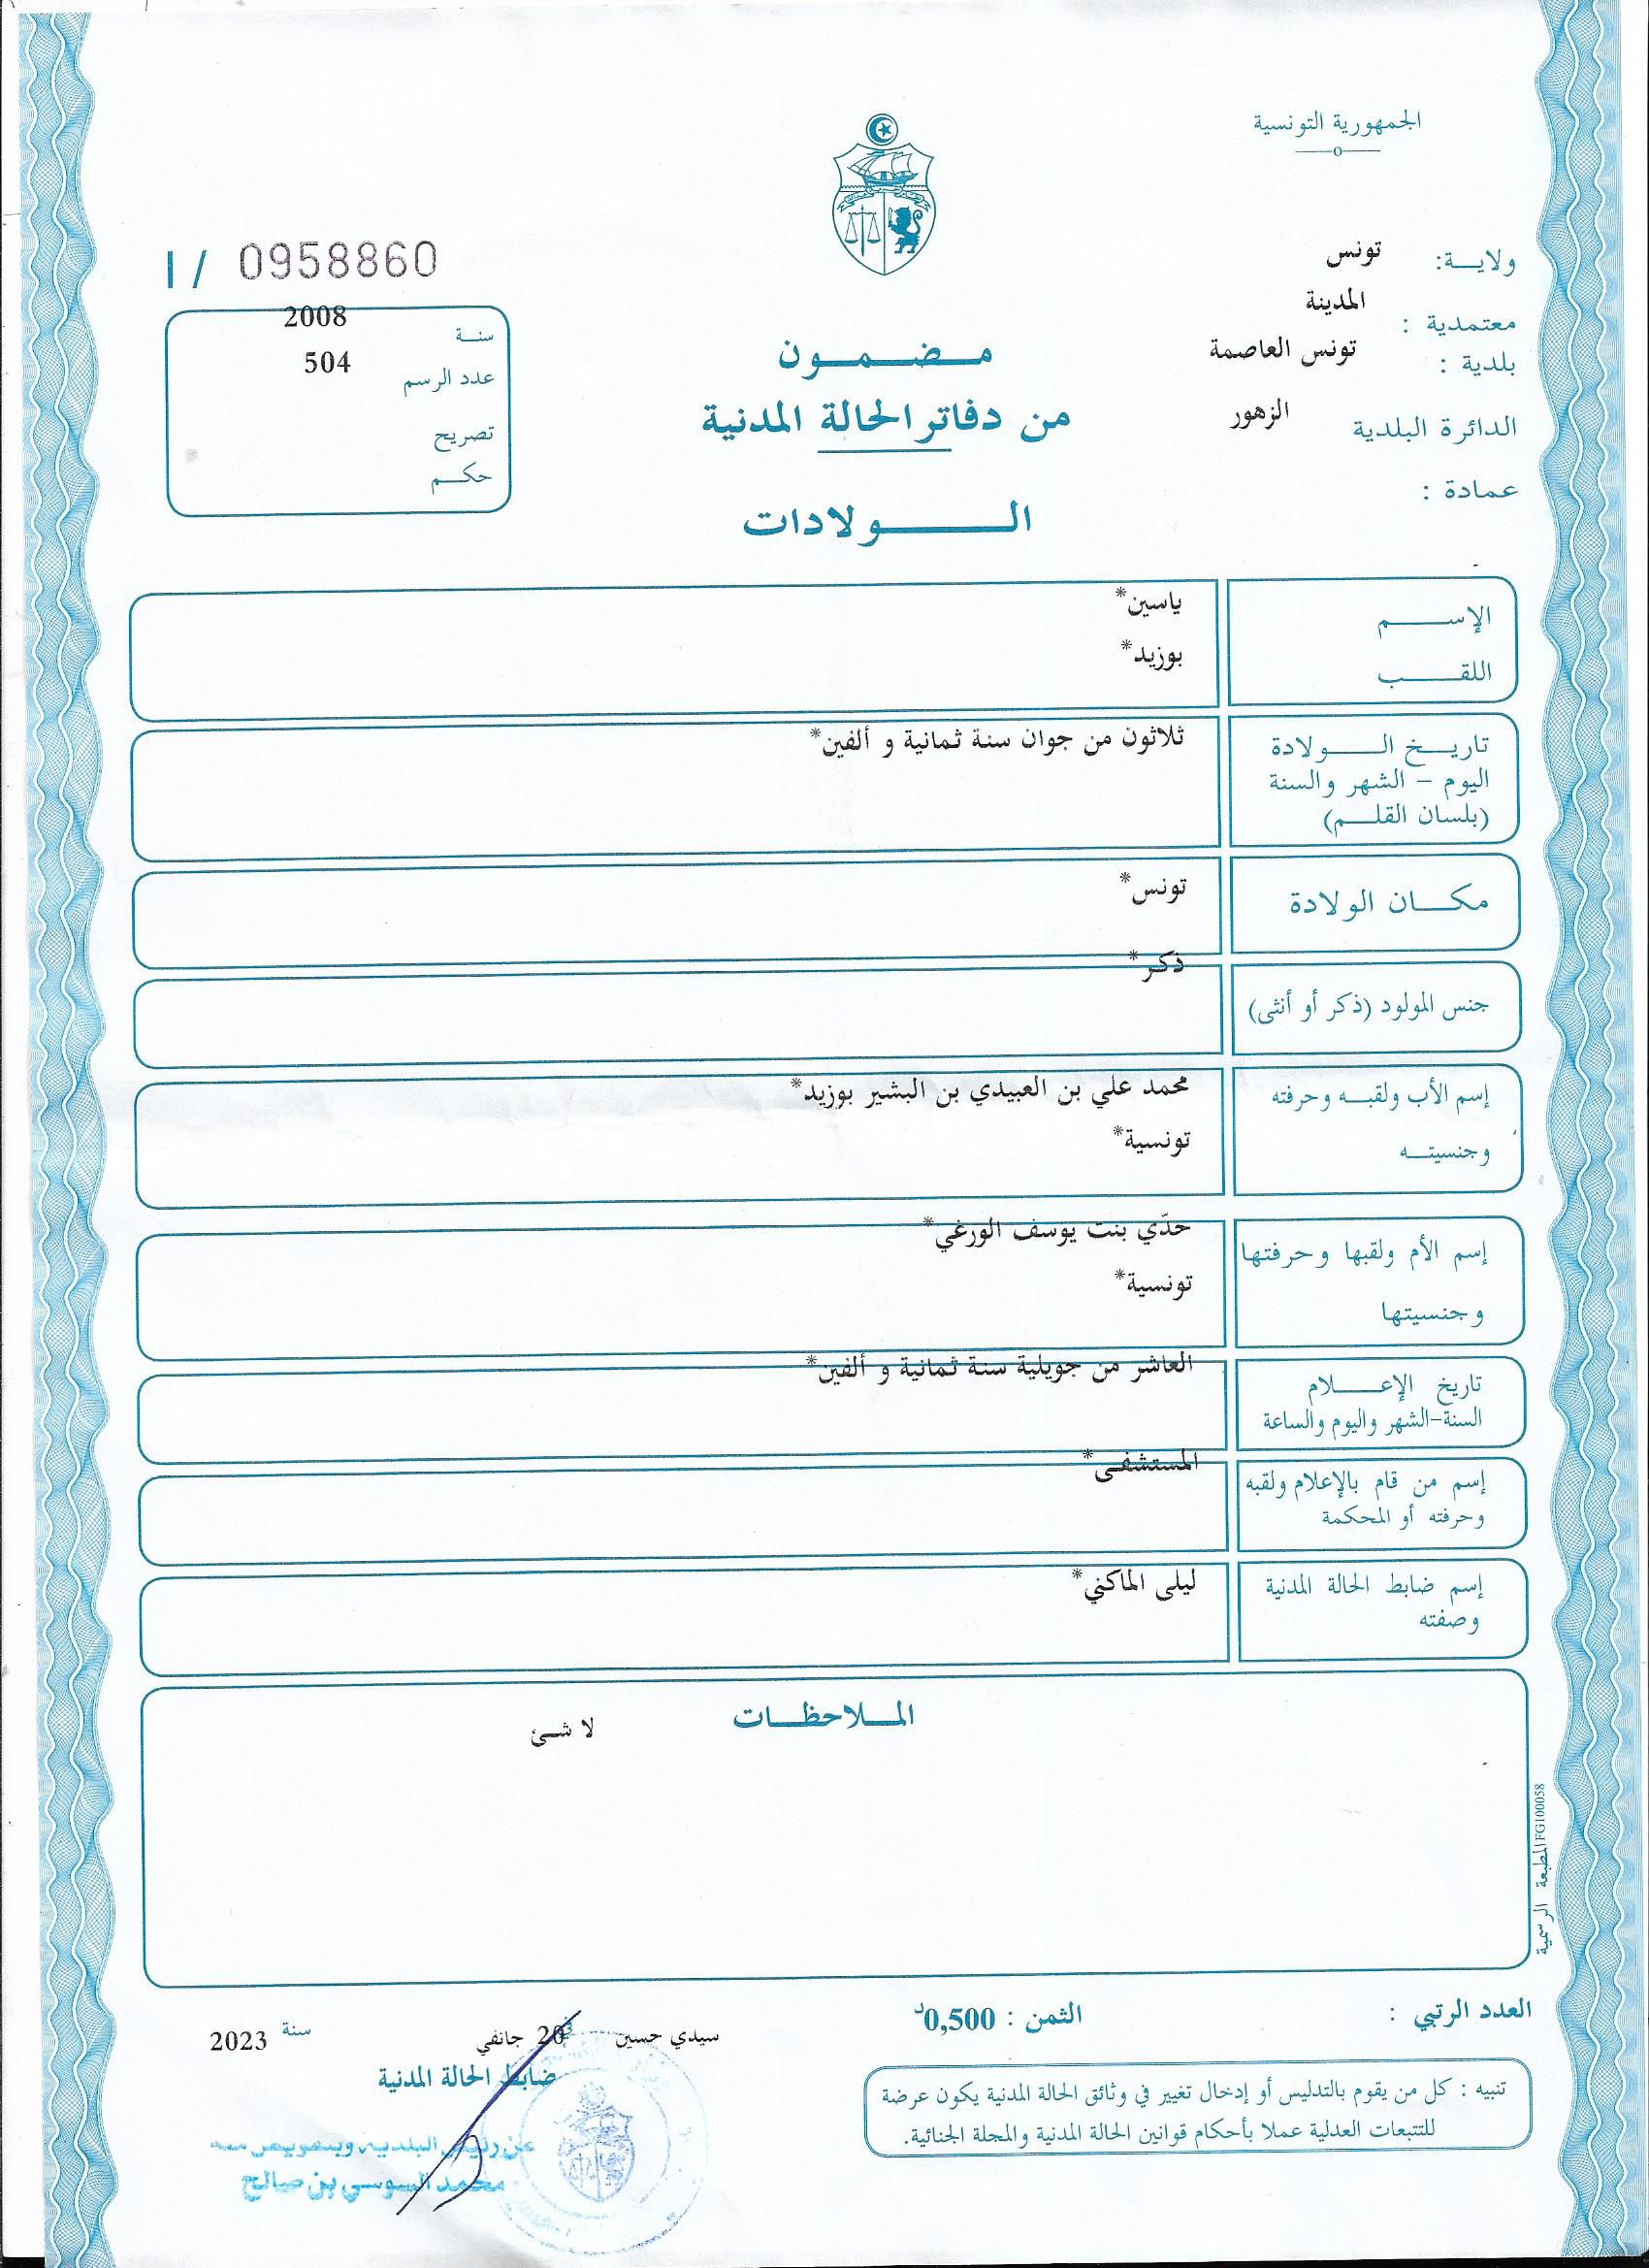 الجمهورية التونسية
ولايـــة: تونس
معتمدية : المدينة
بلدية : تونس العاصمة
الدائرة البلدية الزهور
عمادة :
I / 0958860
سنــة 2008
عدد الرسم 504
تصريح
حكــم
مـضـمـون
من دفاتر الحالة المدنية
الــولادات
الإســـم ياسين*
اللقــب بوزيد*
تاريــخ الــولادة ثلاثون من جوان سنة ثمانية و ألفين*
اليوم – الشهر والسنة
(بلسان القلــم)
مكــان الولادة تونس*
جنس المولود (ذكر أو أنثى) ذكر*
إسم الأب ولقبــه وحرفته محمد علي بن العبيدي بن البشير بوزيد*
وجنسيتــه تونسية*
إسم الأم ولقبها وحرفتها حدّي بنت يوسف الورغي*
وجنسيتها تونسية*
تاريخ الإعـــلام العاشر من جويلية سنة ثمانية و ألفين*
السنة-الشهر واليوم والساعة
إسم من قام بالإعلام ولقبه المستشفى*
وحرفته أو المحكمة
إسم ضابط الحالة المدنية ليلى الماكني*
وصفته
المــلاحظــات
لا شئ
المطبعة الرسمية FG100058
العدد الرتبي :
الثمن : 0,500د
سيدي حسين 20 جانفي سنة 2023
ضابط الحالة المدنية
عن رئيس البلدية وبتفويض منه
محمد السوسي بن صالح
تنبيه : كل من يقوم بالتدليس أو إدخال تغيير في وثائق الحالة المدنية يكون عرضة
للتتبعات العدلية عملا بأحكام قوانين الحالة المدنية والمجلة الجنائية.